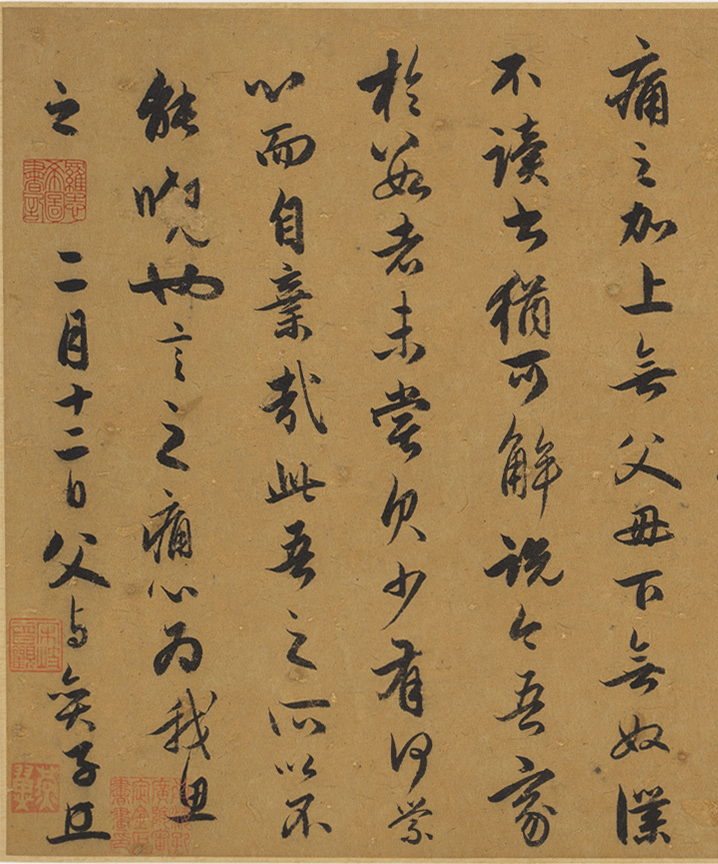 痛之加上無父母下無奴僕
不讀書猶可解說今吾家
於數者未嘗欠少有何縈
心而自棄哉此吾之所以不
能曉也言之痛心為我思
之
二月十二日父與奕子